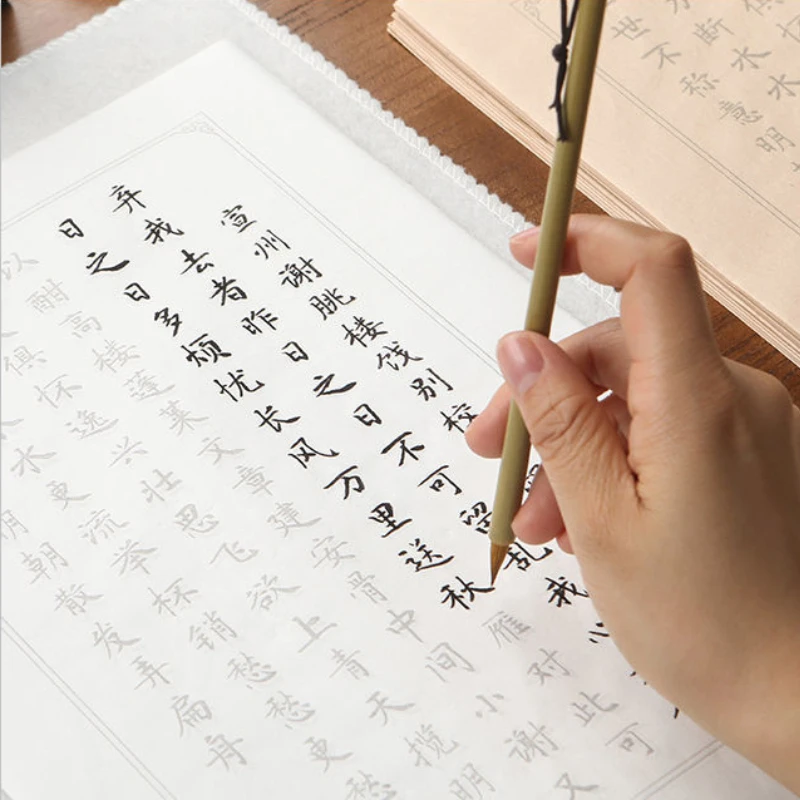 宣州谢朓楼饯别校
弃我去者昨日之日不可留乱我心
日之日多烦忧长风万里送秋雁对此可
以酣高楼蓬莱文章建安骨中间小谢又
俱怀逸兴壮思飞欲上青天揽明
水更流举杯销愁愁更愁
明朝散发弄扁舟
怀
断水水
世不称意明